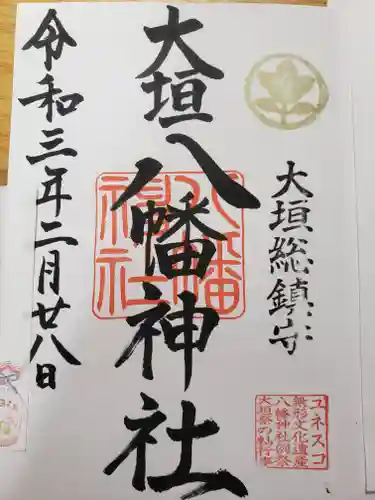 大垣総鎮守
大垣八幡神社
八幡神社
令和三年二月廿八日
ユネスコ
無形文化遺産
八幡神社例祭
大垣祭の軕行事